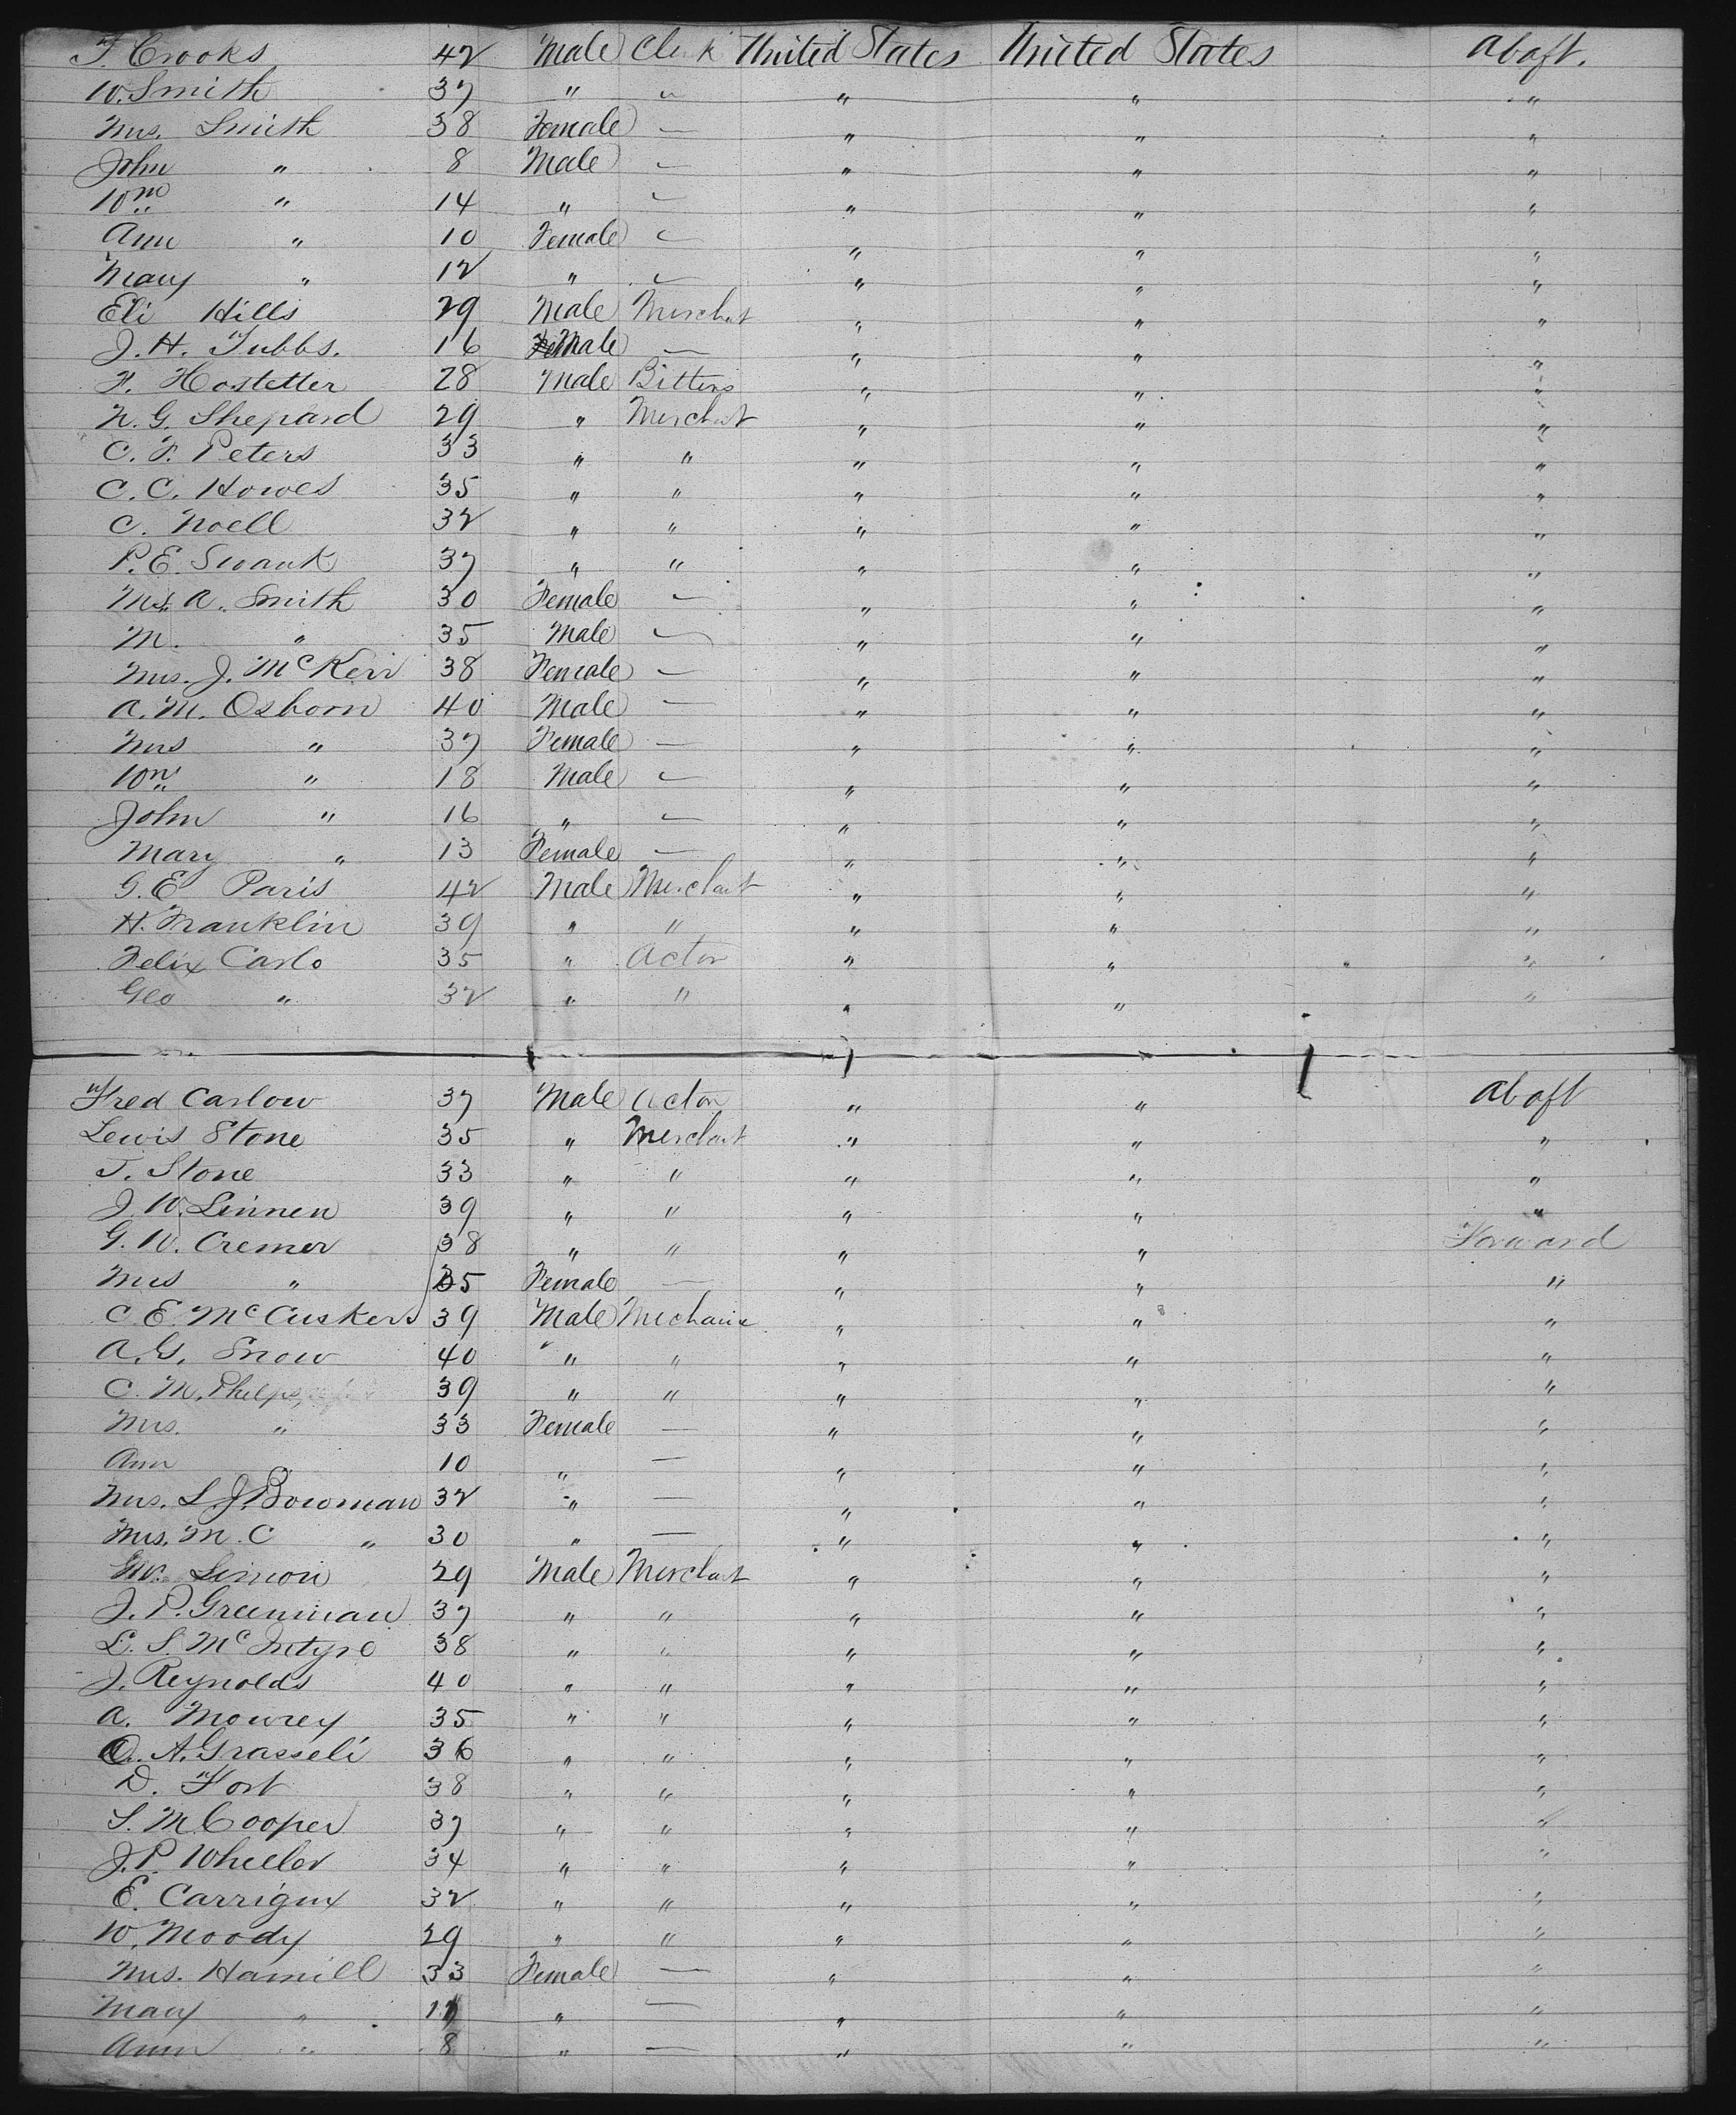 F. Crooks 42 Male Clerk United States United States Abaft.
W. Smith 37 " " " " "
Mrs. Smith 38 Female — " " "
John " 8 Male — " " "
Wm " 14 " — " " "
Ann " 10 Female — " " "
Mary " 12 " — " " "
Eli Hills 29 Male Merchat " " "
J. H. Tubbs. 16 Male — " " "
F. Hostetter 28 Male Bitters " " "
N. G. Shepard 29 " Merchat " " "
C. F. Peters 33 " " " " "
C. C. Howes 35 " " " " "
C. Noell 32 " " " " "
P. E. Swank 37 " " " " "
Mrs. A. Smith 30 Female — " " "
M. " 35 Male — " " "
Mrs. J. McKerr 38 Female — " " "
A. M. Osborn 40 Male — " " "
Mrs " 37 Female — " " "
Wm " 18 Male — " " "
John " 16 " — " " "
Mary " 13 Female — " " "
G. E Paris 42 Male Merchant " " "
H. Franklin 39 " " " " "
Felix Carlo 35 " Actor " " "
Geo " 32 " " " " "
Fred Carlow 37 Male Actor " " Abaft
Lewis Stone 35 " Merchant " " "
T. Stone 33 " " " " "
J. W. Linnen 39 " " " " "
G. W. Cremer 38 " " " " Forward
Mrs " 35 Female — " " "
C. E. McCuskers 39 Male Mechanic " " "
A. G. Snow 40 " " " " "
C. M. Phelps 39 " " " " "
Mrs. " 33 Female — " " "
Ann " 10 " — " " "
Mrs. L. J. Bowman 32 " — " " "
Mrs. M. C " 30 " — " " "
Simon 29 Male Merchant " " "
J. P. Greenman 37 " " " " "
L. S. McIntyre 38 " " " " "
J. Reynolds 40 " " " " "
A. Mowrey 35 " " " " "
A. Grasseli 36 " " " " "
D. Fort 38 " " " " "
S. M. Cooper 37 " " " " "
J. P. Wheeler 34 " " " " "
E. Carriguy 32 " " " " "
W. Moody 29 " " " " "
Mrs. Hamill 33 Female — " " "
Mary " 11 " — " " "
Ann " 8 " — " " "